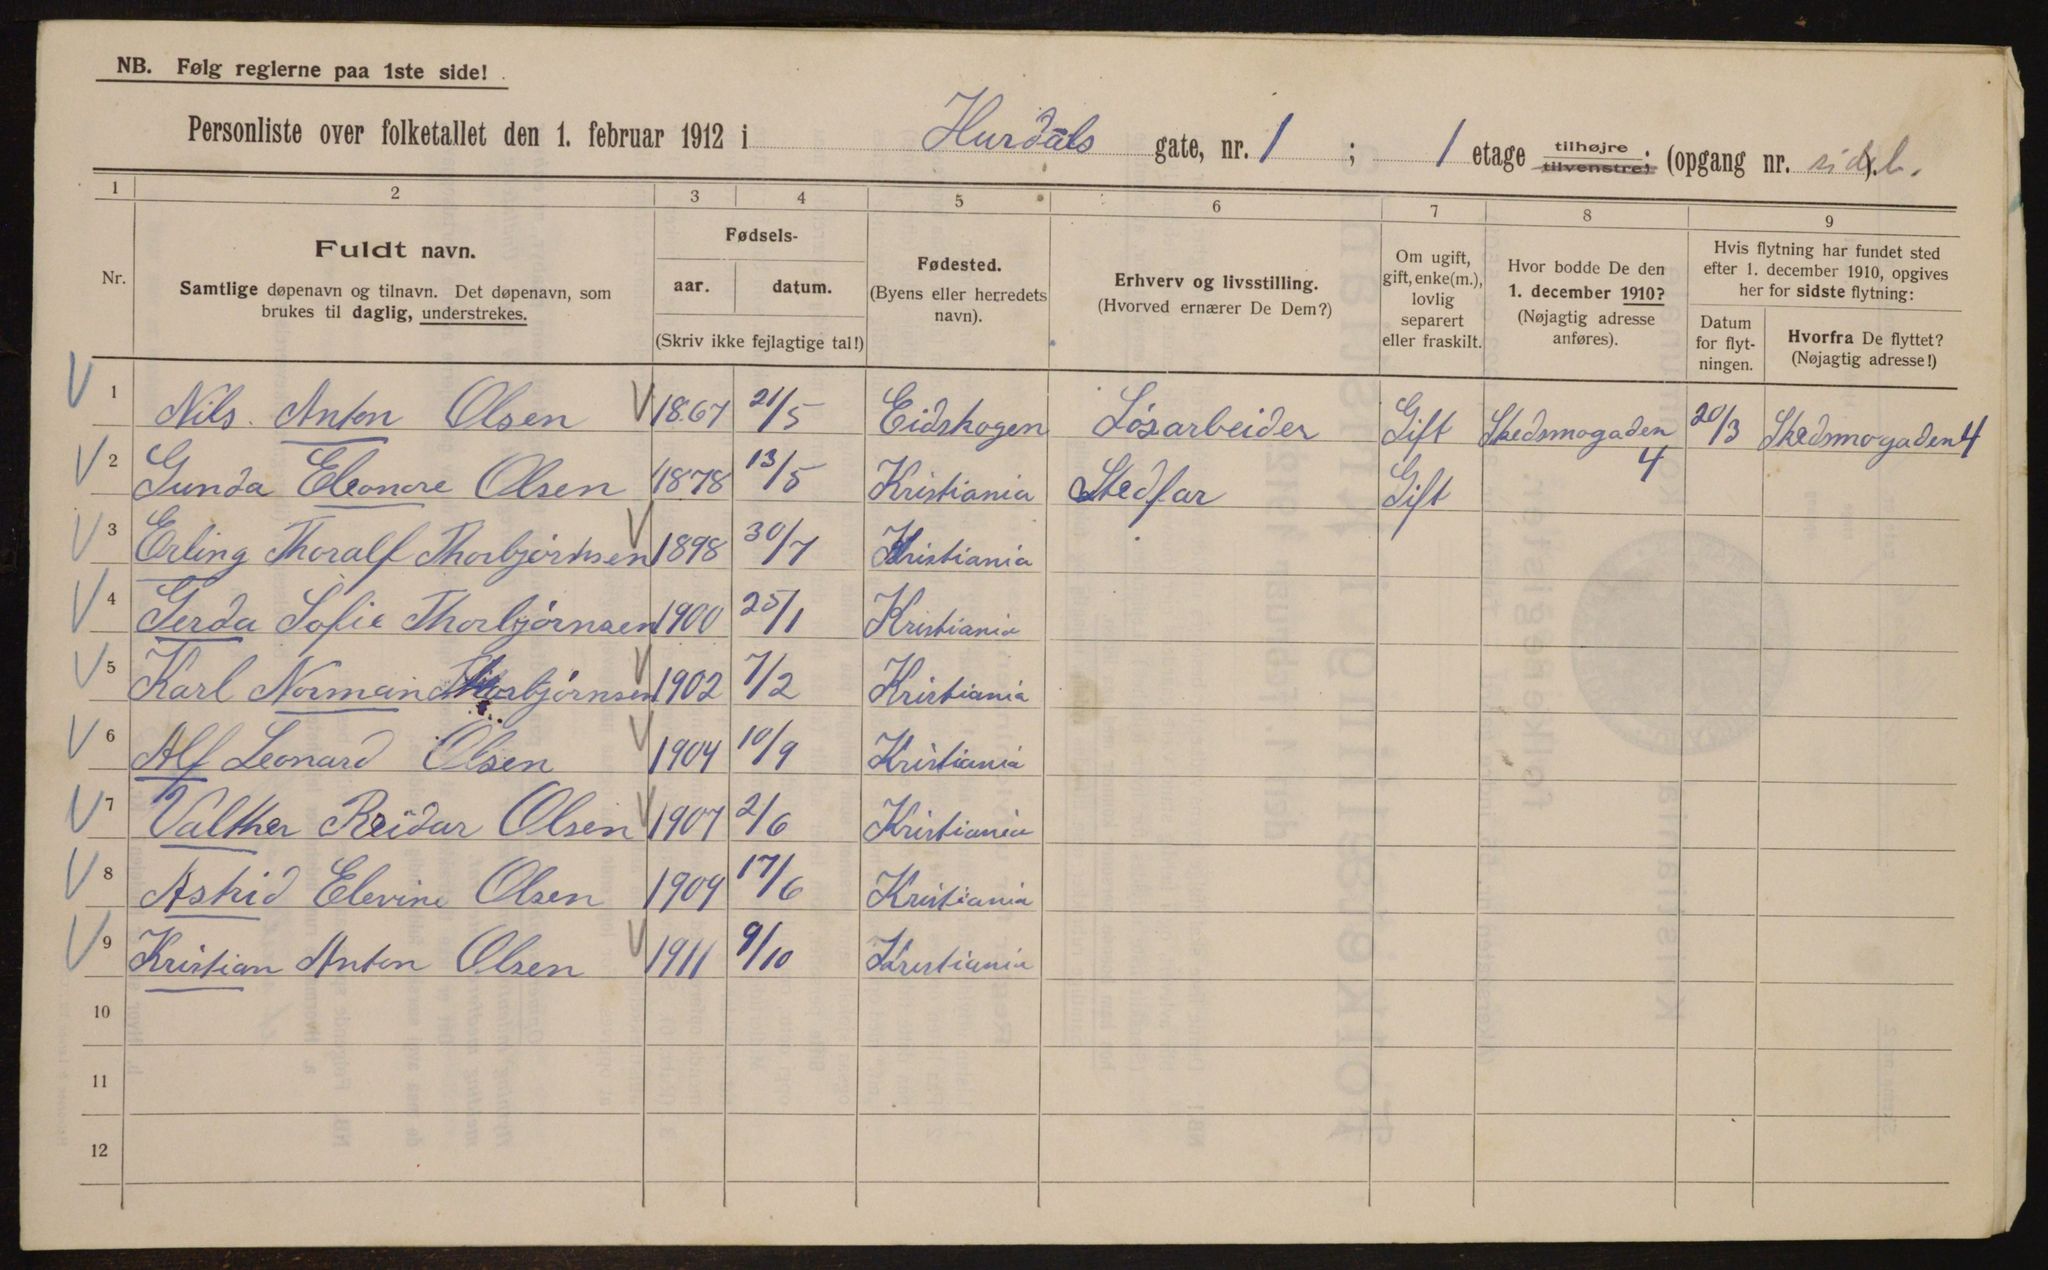 NB. Følg reglerne paa 1ste side!
Personliste over folketallet den 1. februar 1912 i Hurdals gate, nr. 1 ; 1 etage tilhøjre tilvenstre; (opgang nr. ).
1 2 3 4 5 6 7 8 9
Nr.
Fuldt navn.
Samtlige døpenavn og tilnavn. Det døpenavn, som
brukes til daglig, understrekes.
Fødsels-
aar. datum.
(Skriv ikke fejlagtige tal!)
Fødested.
(Byens eller herredets
navn).
Erhverv og livsstilling.
(Hvorved ernærer De Dem?)
Om ugift,
gift, enke(m.),
lovlig
separert
eller fraskilt.
Hvor bodde De den
1. december 1910?
(Nøjagtig adresse
anføres).
Hvis flytning har fundet sted
efter 1. december 1910, opgives
her for sidste flytning:
Datum
for flyt-
ningen.
Hvorfra De flyttet?
(Nøjagtig adresse!)
1 Nils Anton Olsen 1867 21/5 Eidskogen Løsarbeider Gift Skedsmogaden 4 20/3 Skedsmogaden 4
2 Gunda Eleonore Olsen 1878 13/5 Kristiania Gift
3 Erling Thoralf Thorbjørnsen 1898 30/7 Kristiania
4 Gerda Sofie Thorbjørnsen 1900 25/1 Kristiania
5 Karl Norman Thorbjørnsen 1902 7/2 Kristiania
6 Alf Leonard Olsen 1904 10/9 Kristiania
7 Valther Reidar Olsen 1907 2/6 Kristiania
8 Astrid Elevine Olsen 1909 17/6 Kristiania
9 Kristian Anton Olsen 1911 9/10 Kristiania
10
11
12